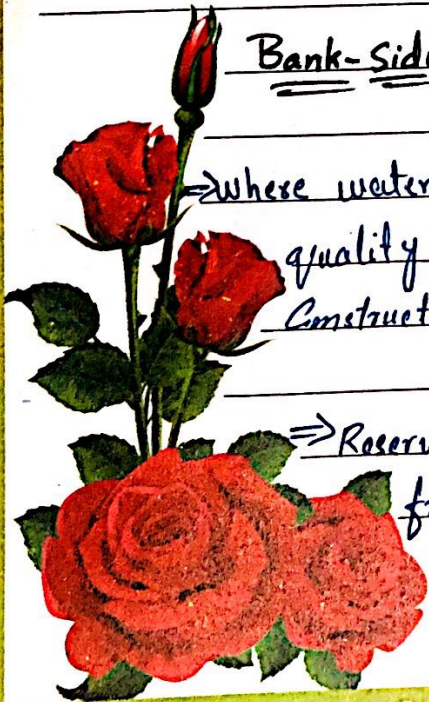 Bank-Side
⇒ Where water
quality
Construct
⇒ Reserv